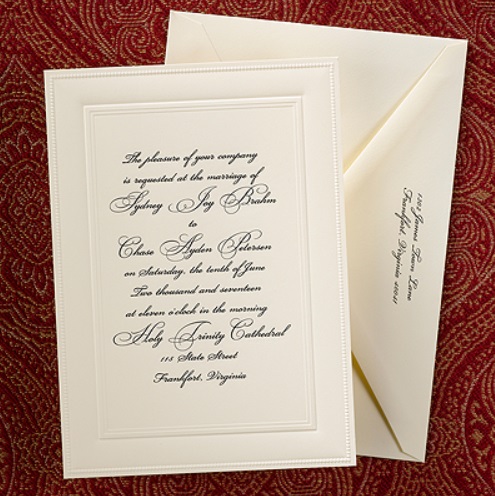 The pleasure of your company
is requested at the marriage of
Sydney Joy Brahm
to
Chase Ayden Petersen
on Saturday, the tenth of June
Two thousand and seventeen
at eleven o'clock in the morning
Holy Trinity Cathedral
115 State Street
Frankfort, Virginia
James Town Lane
Frankfort, Virginia